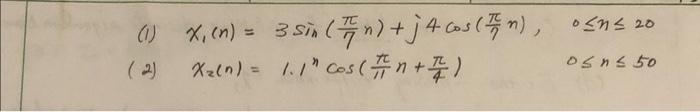 (1) x₁(n) = 3 sin(π/7 n) + j4 cos(π/7 n), 0≤n≤20
(2) x₂(n) = 1.1ⁿ cos(π/11 n + π/4) 0≤n≤50